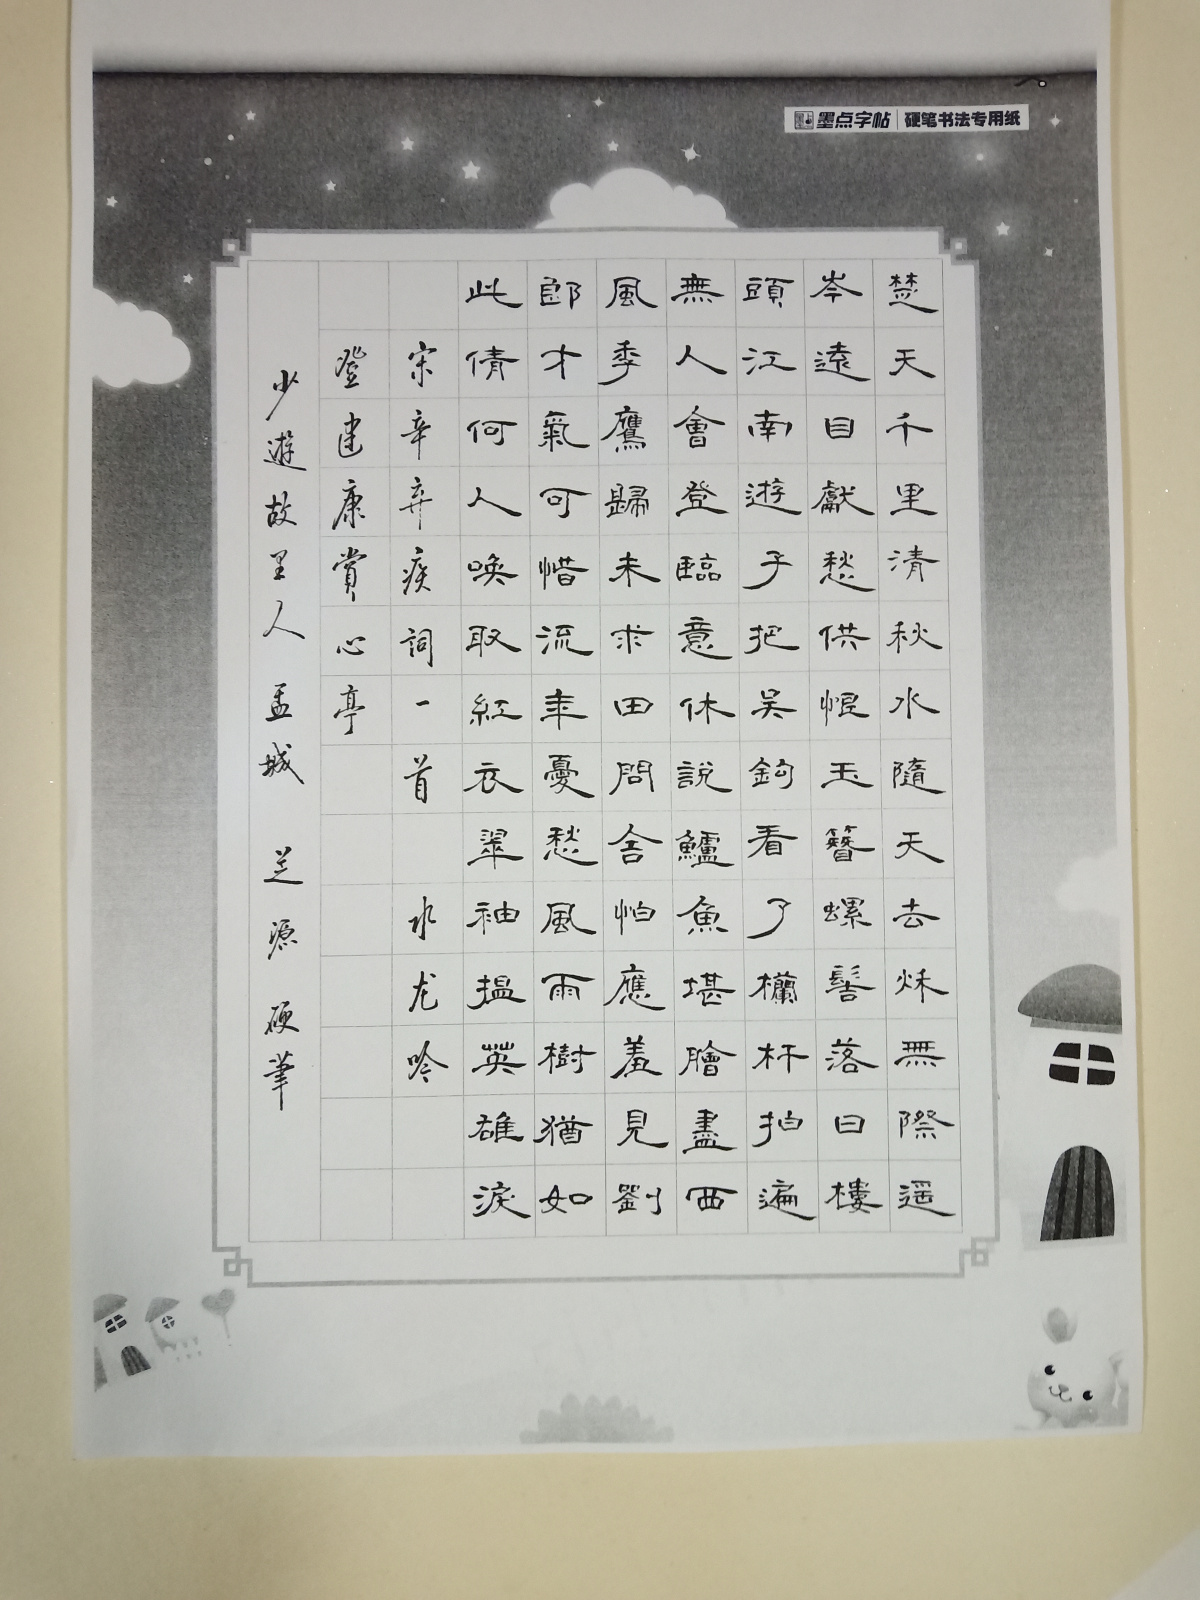 墨点字帖 硬笔书法专用纸
楚天千里清秋水隨天去秌無際遥
岑遠目獻愁供恨玉簪螺髻落日樓
頭江南遊子把吴鈎看了欄杆拍遍
無人會登臨意休說鱸魚堪膾盡西
風季鷹歸未求田問舍怕應羞見劉
郎才氣可惜流年憂愁風雨樹猶如
此倩何人唤取紅衣翠袖揾英雄淚
宋辛弃疾詞一首 水龙吟
登建康賞心亭
少遊故里人 孟城 芝源 硬筆